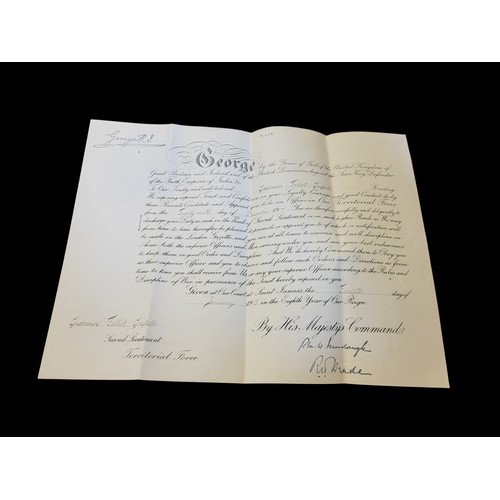 George R. I
George by the Grace of God, of the United Kingdom of
Great Britain and Ireland and of the British Dominions beyond the Seas King, Defender
of the Faith, Emperor of India, &c.
To Our Trusty and well beloved Greeting
We reposing especial Trust and Confidence in your Loyalty, Courage, and good Conduct, do by
these Presents Constitute and Appoint you to be an Officer in Our Territorial Force
from the day of 19 You are therefore carefully and diligently to
discharge your Duty as such in the Rank of Second Lieutenant or in such higher Rank as We may
from time to time hereafter be pleased to promote or appoint you to, of which a notification will
be made in the London Gazette, and you are at all times to exercise and well discipline in
Arms both the inferior Officers and Men serving under you and use your best endeavours
to keep them in good Order and Discipline. And We do hereby Command them to Obey you
as their superior Officer, and you to observe and follow such Orders and Directions as from
time to time you shall receive from Us, or any your superior Officer, according to the Rules and
Discipline of War, in pursuance of the Trust hereby reposed in you.
Given at Our Court, at Saint James's, the day of
19 in the Eighth Year of Our Reign
By His Majesty's Command
Second Lieutenant
Territorial Force